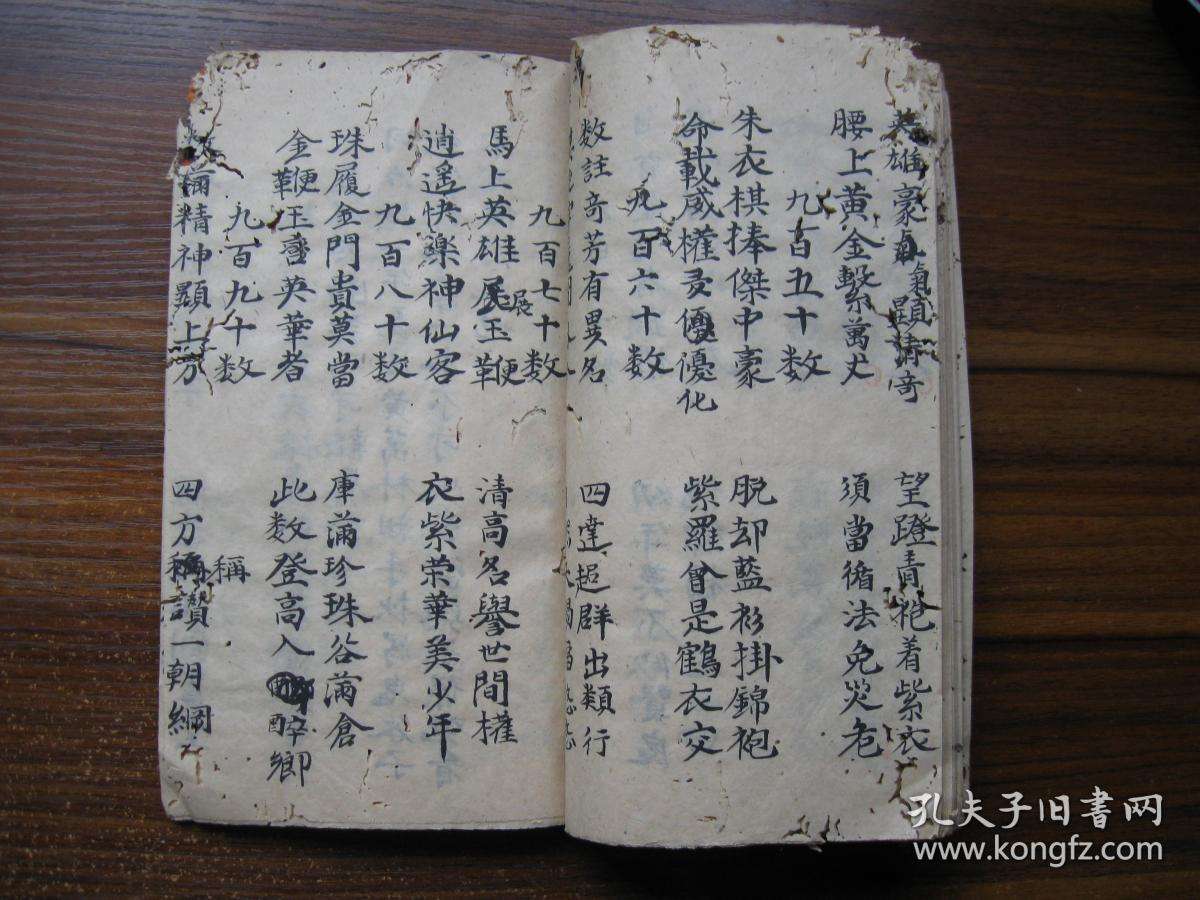 英雄豪氣顯清奇 望蹬青袍着紫衣
腰上黃金繫萬丈 須當循法免災危
九百五十数
朱衣棋捧傑中豪 脱却藍衫掛錦袍
命載威權更優化 紫羅曾是鶴衣交
九百六十数
数註奇芳有異名 四達超群出類行
九百七十数
馬上英雄展玉鞭 清高名譽世間權
逍遥快樂神仙客 衣紫荣華美少年
九百八十数
珠履金門貴莫當 庫滿珍珠谷滿倉
金鞭玉 英華者 此数登高入醉鄉
九百九十数
精神顯上方 四方稱讃一朝綱
孔夫子旧书网
www.kongfz.com